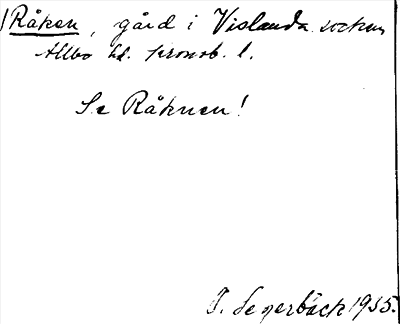 Råken, gård i Vislanda socken,
Allbo hd. Kronob. l.
Se Råknen!
J. Segerbäck 1935.